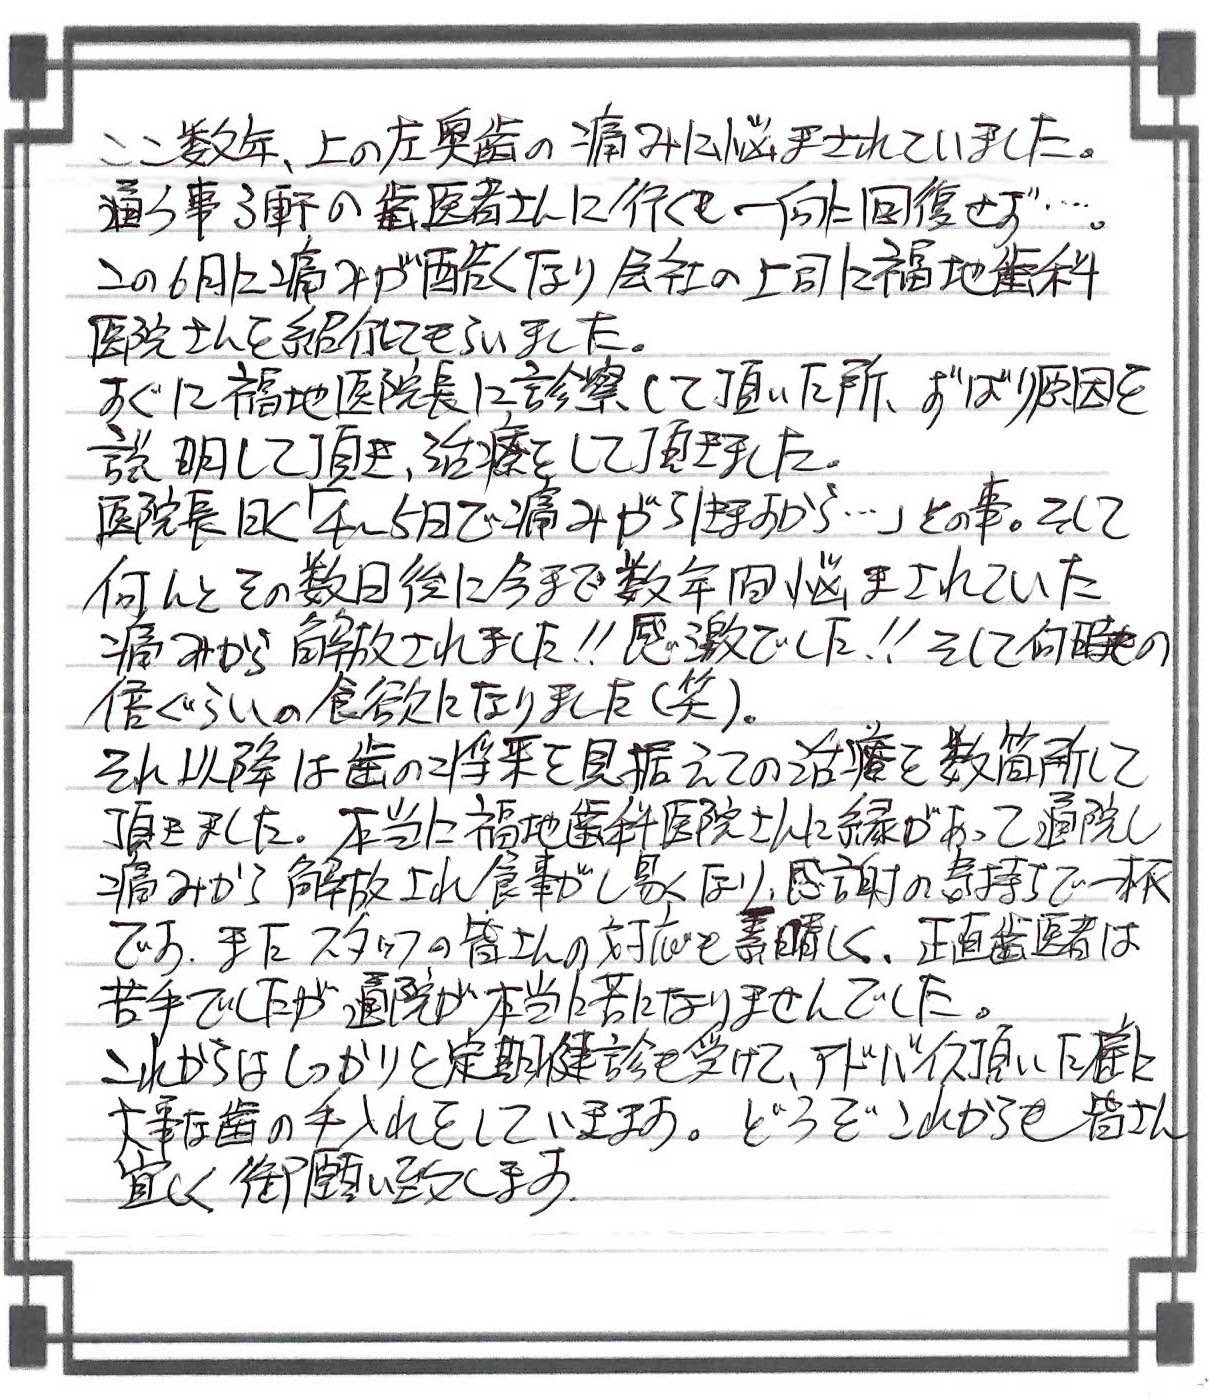 ここ数年、上の左奥歯の痛みに悩まされていました。
通う事3軒の歯医者さんに行くも一向に回復せず…。
この6月に痛みが酷くなり会社の上司に福地歯科
医院さんを紹介してもらいました。
すぐに福地医院長に診察して頂いた所、ずばり原因を
説明して頂き、治療をして頂きました。
医院長曰く「4~5日で痛みが引きますから…」との事。そして
何んとその数日後に今まで数年間悩まされていた
痛みから解放されました!!感激でした!!そして何時もの
倍ぐらいの食欲になりました(笑)。
それ以降は歯の将来を見据えての治療を数箇所して
頂きました。本当に福地歯科医院さんに縁があって通院し
痛みから解放され食事がし易くなり、感謝の気持ちで一杯
です。またスタッフの皆さんの対応も素晴しく、正直歯医者は
苦手でしたが通院が本当に苦になりませんでした。
これからはしっかりと定期健診も受けて、アドバイス頂いた様に
大事な歯の手入れをしていきます。どうぞこれからも皆さん
宜しく御願い致します。